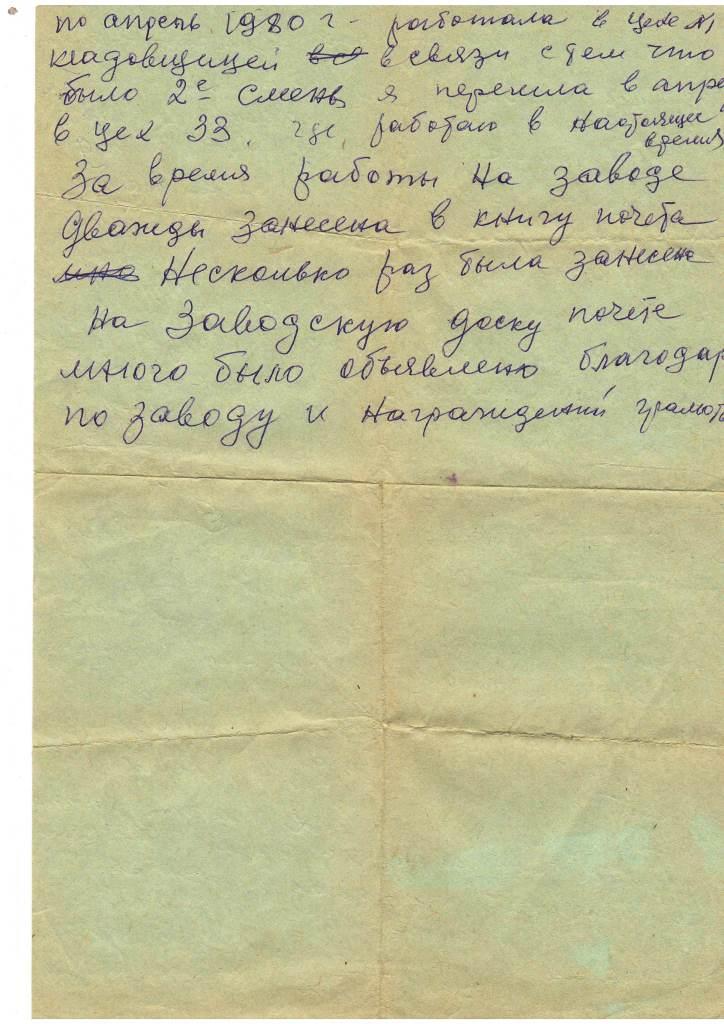 по апрель 1980 г - работала в цехе №1
кладовщицей в связи с тем что
было 2е смены я перешла в апре
в цех 33, где, работаю в настоящее
время
За время работы на заводе
дважды занесена в книгу почёта
Несколько раз была занесена
на Заводскую доску почёте
много было объявлено благодар
по заводу и награждений грамот